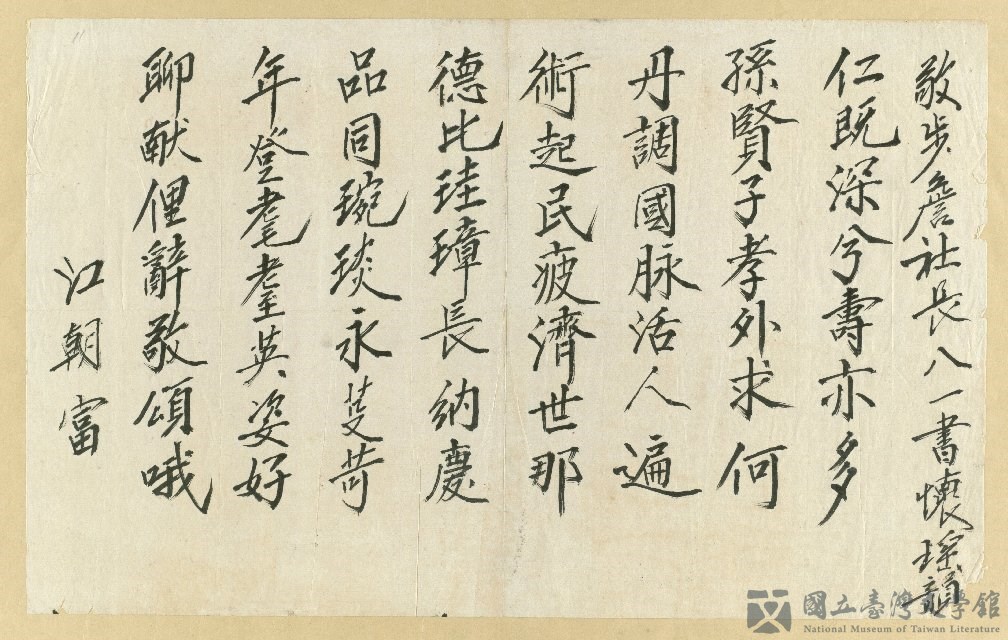 敬步詹社長八一書懷瑶韻
仁既深兮壽亦多
孫賢子孝外求何
丹調國脉活人遍
術起民疲濟世那
德比珪璋長納慶
品同琬琰永蒦苛
年登耄耋英姿好
聊献俚辭敬頌哦
江朝富
國立臺灣文學館
National Museum of Taiwan Literature